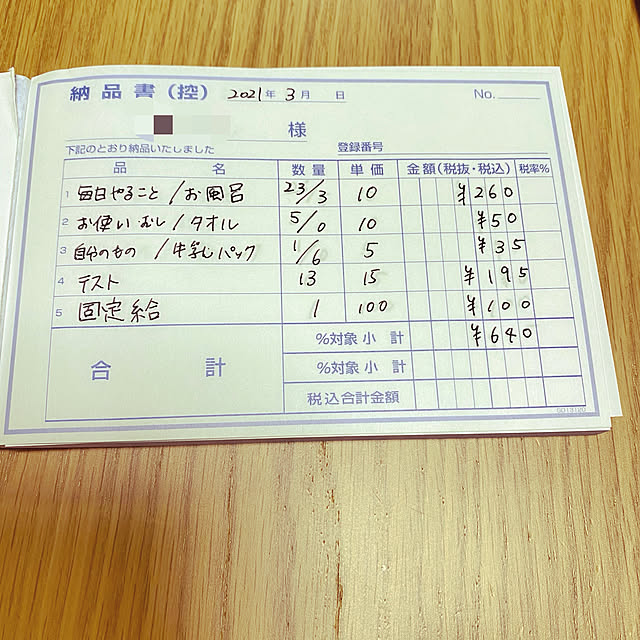 納品書(控) 2021年 3月 日 No.
様
下記のとおり納品いたしました 登録番号
品 名 数量 単価 金額(税抜・税込) 税率%
1 毎日やること/お風呂 23/3 10 ¥260
2 お使い・むし/タオル 5/0 10 ¥50
3 自分のもの/牛乳パック 1/6 5 ¥35
4 テスト 13 15 ¥195
5 固定給 1 100 ¥100
%対象小計 ¥640
合 計 %対象小計
税込合計金額